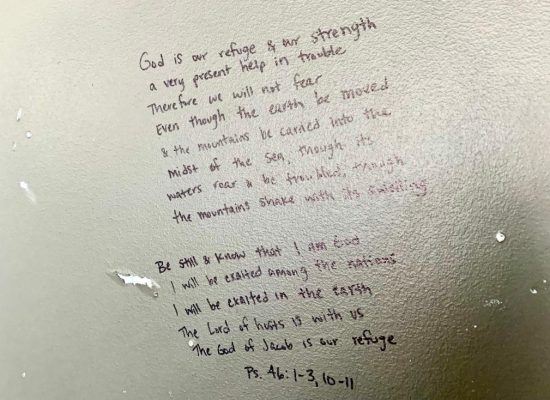 God is our refuge & our strength
a very present help in trouble
Therefore we will not fear
Even though the earth be moved
& the mountains be carried into the
midst of the sea, though its
waters roar & be troubled, though
the mountains shake with its swelling
Be still & know that I am God
I will be exalted among the nations
I will be exalted in the earth
The Lord of hosts is with us
The God of Jacob is our refuge
Ps. 46:1-3, 10-11